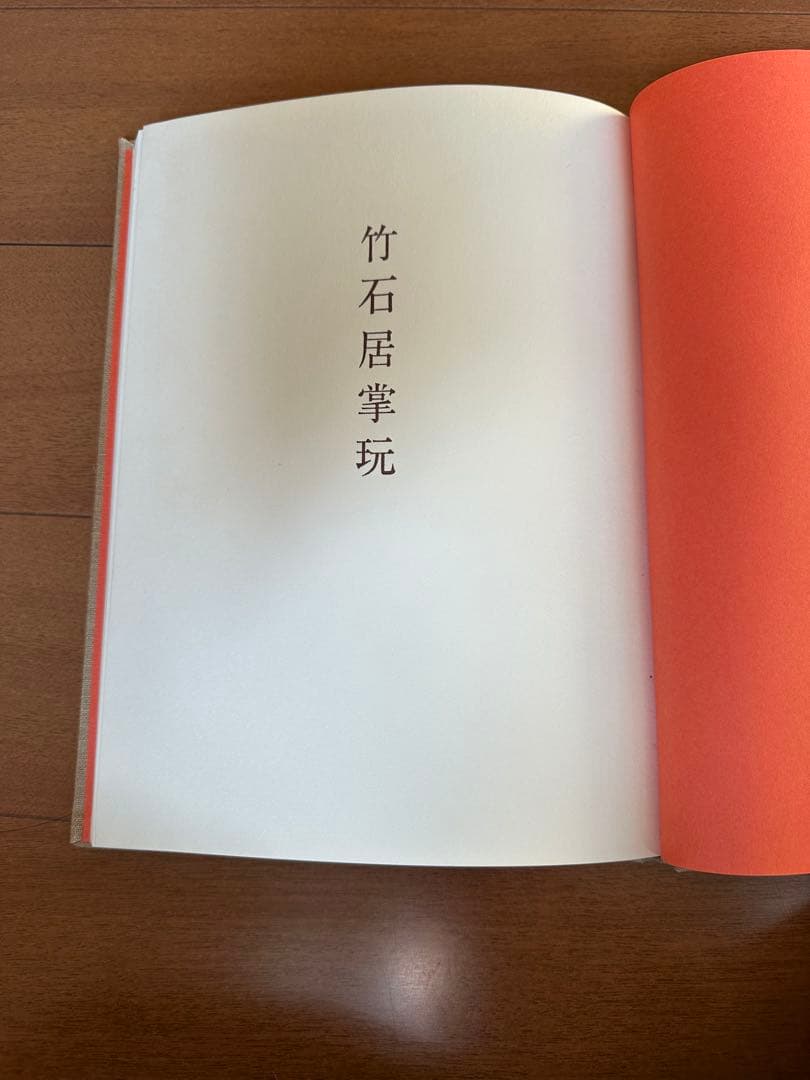 竹石居掌玩